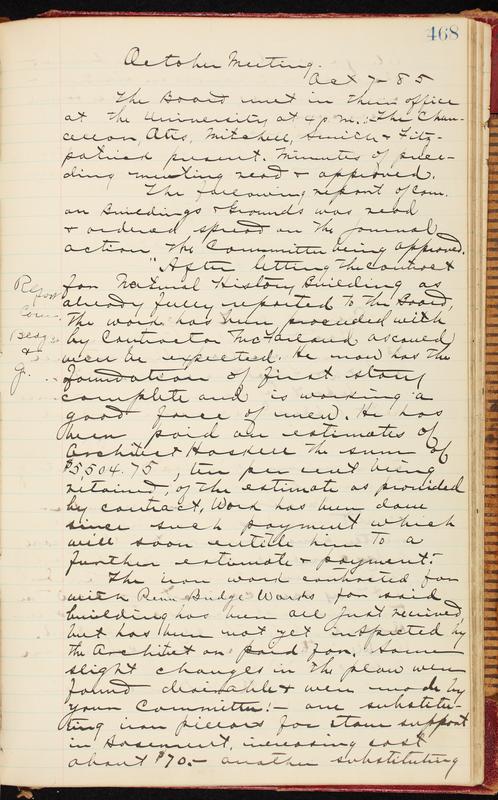 468
October Meeting.
Oct 7 - 85
The Board met in their office
at the University at 4 p.m.: The Chan-
cellor, Atts, Mitchell, Smith & Fitz-
patrick present. Minutes of prece-
ding meeting read & approved.
The following report of Com.
on Buildings & Grounds was read
& ordered spread on the Journal
action the Committee being approved.
"After letting the contract
Report
Com.
Bldgs
&
G.
for Natural History Building as
already fully reported to the Board,
the work has been proceeded with
by Contractor McFarland as could
well be expected. He now has the
foundation of first story
complete and is working a
good force of men. He has
been paid on estimates of
Architect Haskell the sum of
$5,504.75, ten per cent being
retained, of the estimate as provided
by contract, Work has been done
since such payment which
will soon entitle him to a
further estimate & payment.
The iron work contracted for
with Penn Bridge Works for said
building has been all just received,
but has been not yet inspected by
the Architect or paid for. Some
slight changes in the plan were
found desirable & were made by
your Committee:- one substitu-
ting iron pillars for stone support
in basement, increasing cost
about $70.- another substituting